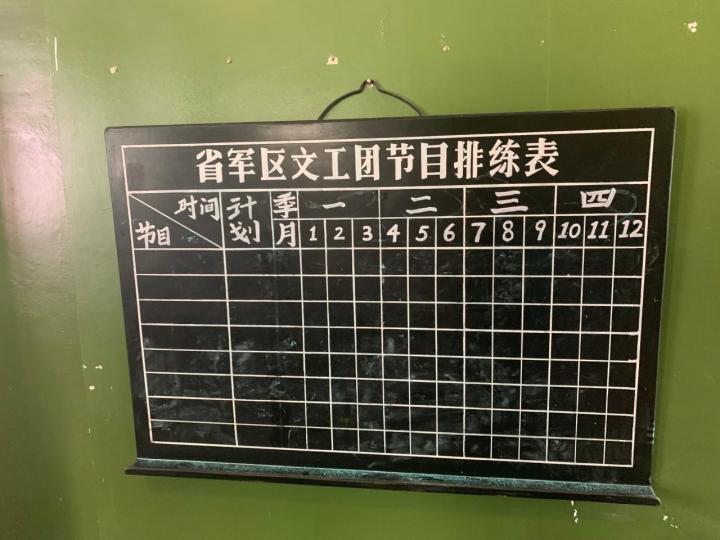 省军区文工团节目排练表
时间 计划 季 一 二 三 四
节目 月 1 2 3 4 5 6 7 8 9 10 11 12